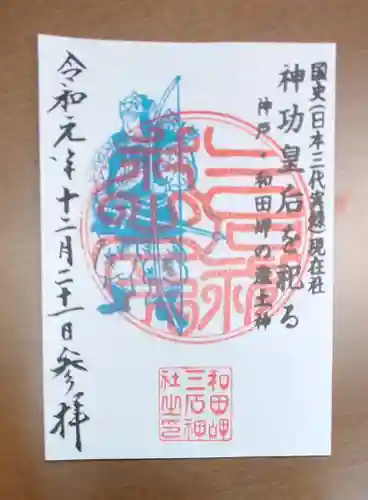 国史(日本三代実録)現在社
神功皇后を祀る
神戸・和田岬の産土神
令和元年十二月二十一日参拝
和田岬
三石神
社之印